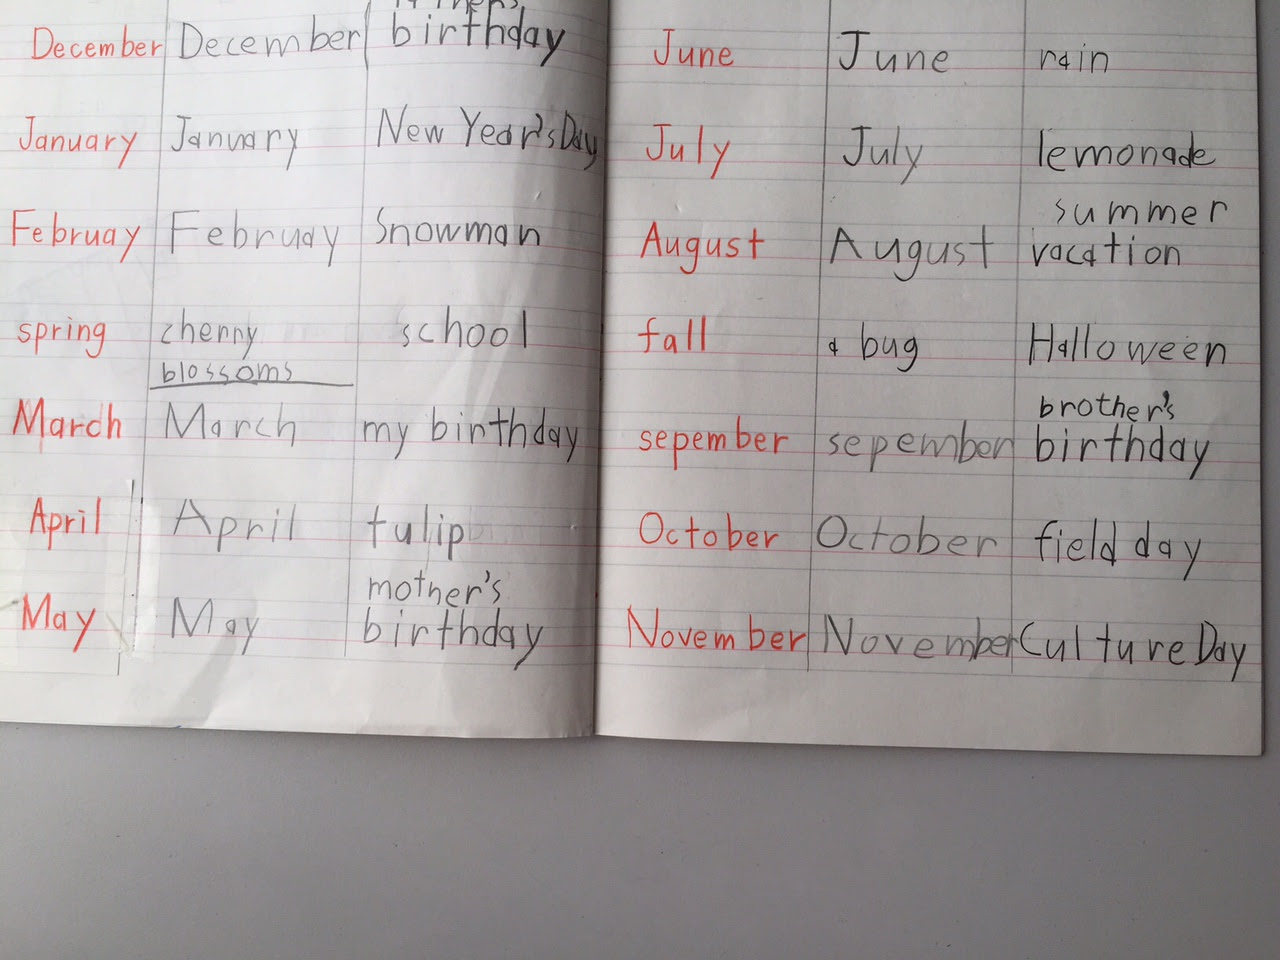 December December birthday
January January New Year's Day
Februay Februay Snowman
spring cherry school
blossoms
March March my birthday
April April tulip
mother's
May May birthday
June June rain
July July lemonade
summer
August August vacation
fall a bug Halloween
brother's
sepember sepember birthday
October October field day
November November Culture Day